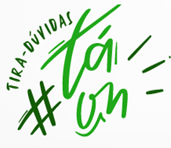 TIRA-DÚVIDAS
#tá
on